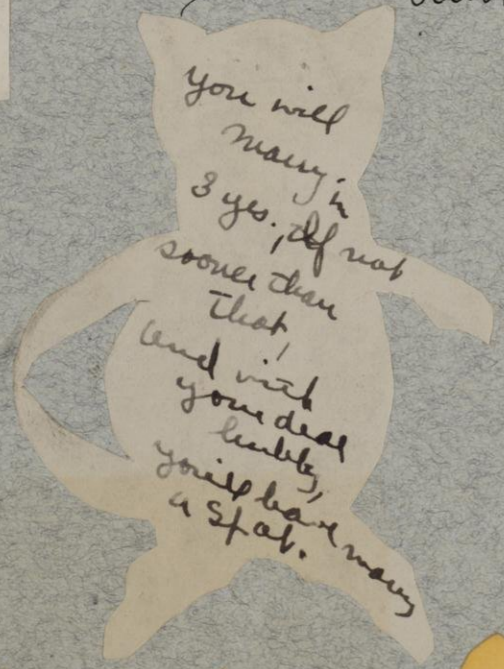 you will
marry in
3 yrs., if not
sooner than
that,
and with
your dear
hubby,
you'll have many
a spat.